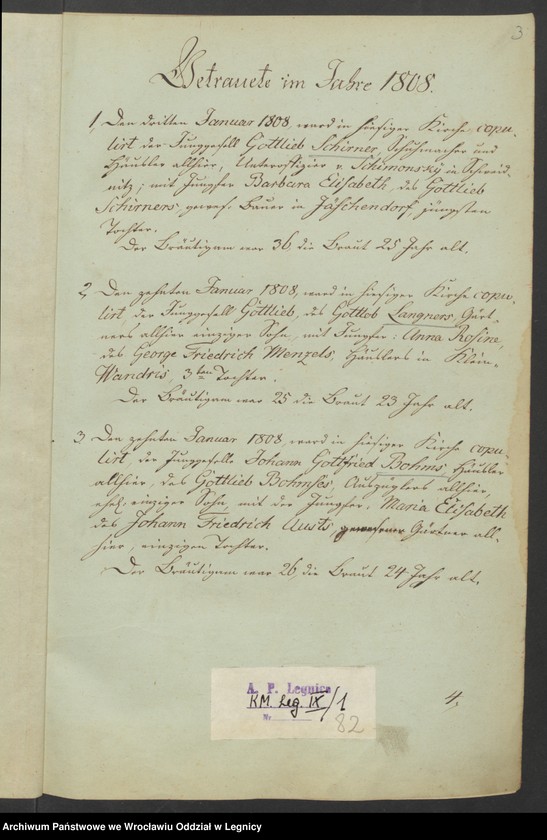 3
Getrauete im Jahre 1808.
1, Den dritten Januar 1808, ward in hiesiger Kirche copu-
lirt der Junggesell Gottlieb Schirner, Schuhmacher und
Häusler allhier, Unteroffizier v. Schimonsky in Schweid-
nitz, mit Jungfer Barbara Elisabeth, des Gottlieb
Schirners, gewes. Bauer in Jäschendorf, jüngsten
Tochter.
Der Bräutigam war 36, die Braut 25 Jahr alt.
2, Den zehnten Januar 1808, ward in hiesiger Kirche copu-
lirt, der Junggesell Gottlieb, des Gottlob Langners, Gärt-
ners allhier einziger Sohn, mit Jungfer: Anna Rosine,
des George Friedrich Menzels, Häuslers in Klein-
Wandris, 3ten Tochter.
Der Bräutigam war 25 die Braut 23 Jahr alt.
3, Den zehnten Januar 1808, ward in hiesiger Kirche copu-
lirt der Junggeselle Johann Gottfried Bohms, Häusler
allhier, des Gottlieb Bohmses, Auszüglers allhier,
ehel. einziger Sohn, mit der Jungfer: Maria Elisabeth
des Johann Friedrich Austs, gewesener Gärtner all-
hier, einzigen Tochter.
Der Bräutigam war 26, die Braut 24 Jahr alt.
A. P. Legnica
KM. Leg. IX/1
Nr
82
4,
Archiwum Państwowe we Wrocławiu Oddział w Legnicy